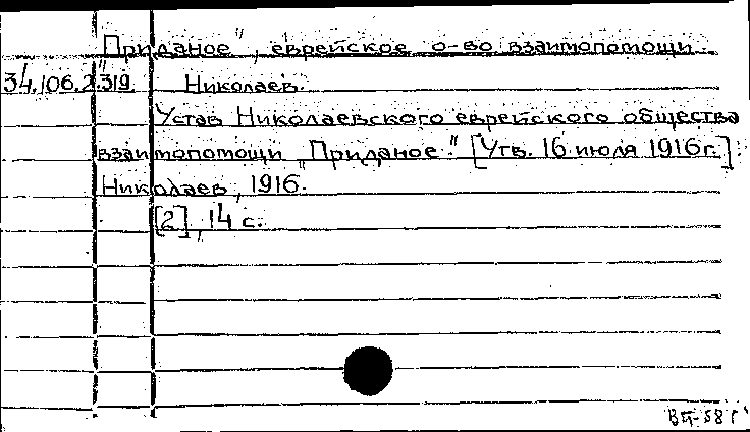 „Приданое", еврейское о-во взаимопомощи.
34.106.2.319. Николаев.
Устав Николаевского еврейского общества
взаимопомощи „Приданое". [Утв. 16 июля 1916г.].
Николаев, 1916.
[2], 14 с.